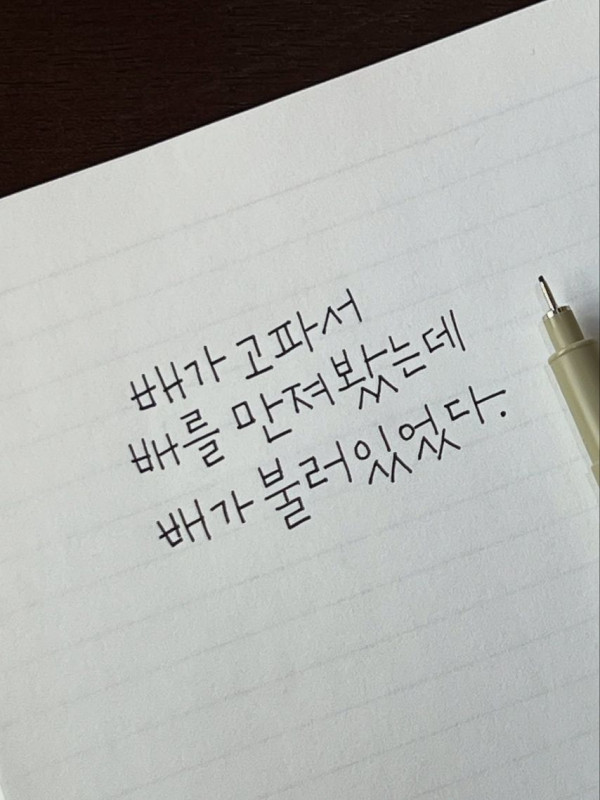 배가 고파서
배를 만져봤는데
배가 불러있었다.